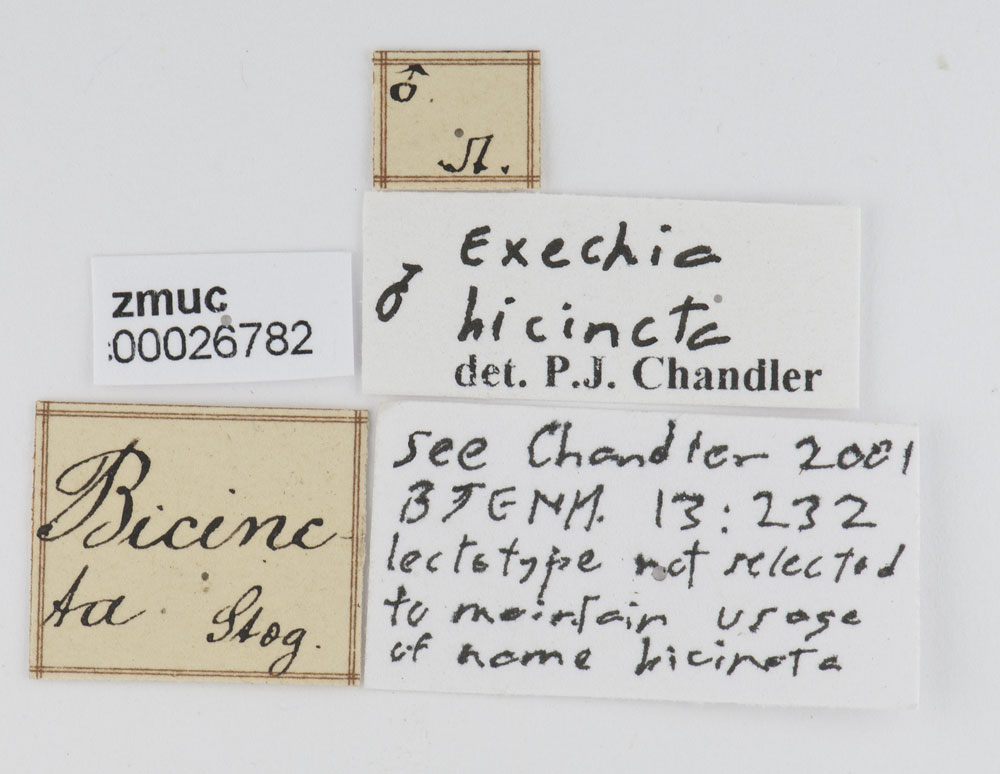 ♂
St.
zmuc
00026782
♂ Exechia
bicincta
det. P.J. Chandler
Bicinc-
ta Stæg.
see Chandler 2001
BJENH. 13:232
lectotype not selected
to maintain usage
of name bicincta